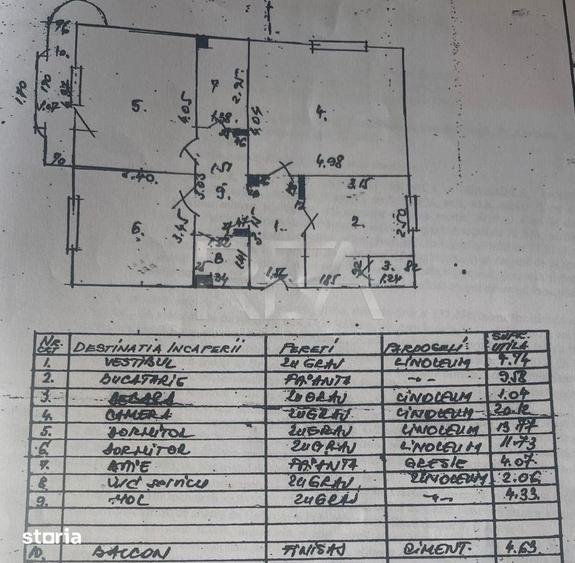 5.
7
4.
4.05
2.95
4.04
4.98
3.15
1.70
3.40
9.
6.
3.45
1.
2.
2.50
8
3.
1.85
1.24
NR. CRT DESTINATIA INCAPERII PERETI PARDOSELI SUPR. UTILA
1. VESTIBUL ZUGRAV LINOLEUM 4.74
2. BUCATARIE FAIANTA -"- 9.58
3. ZUGRAV LINOLEUM 1.04
4. CAMERA ZUGRAV LINOLEUM 20.12
5. DORMITOR ZUGRAV LINOLEUM 13.77
6. DORMITOR ZUGRAV LINOLEUM 11.73
7. BAIE FAIANTA GRESIE 4.07
8 W.C serviciu ZUGRAV LINOLEUM 2.06
9. HOL ZUGRAV -"- 4.33
10. BALCON FINISAJ CIMENT. 4.63
storia